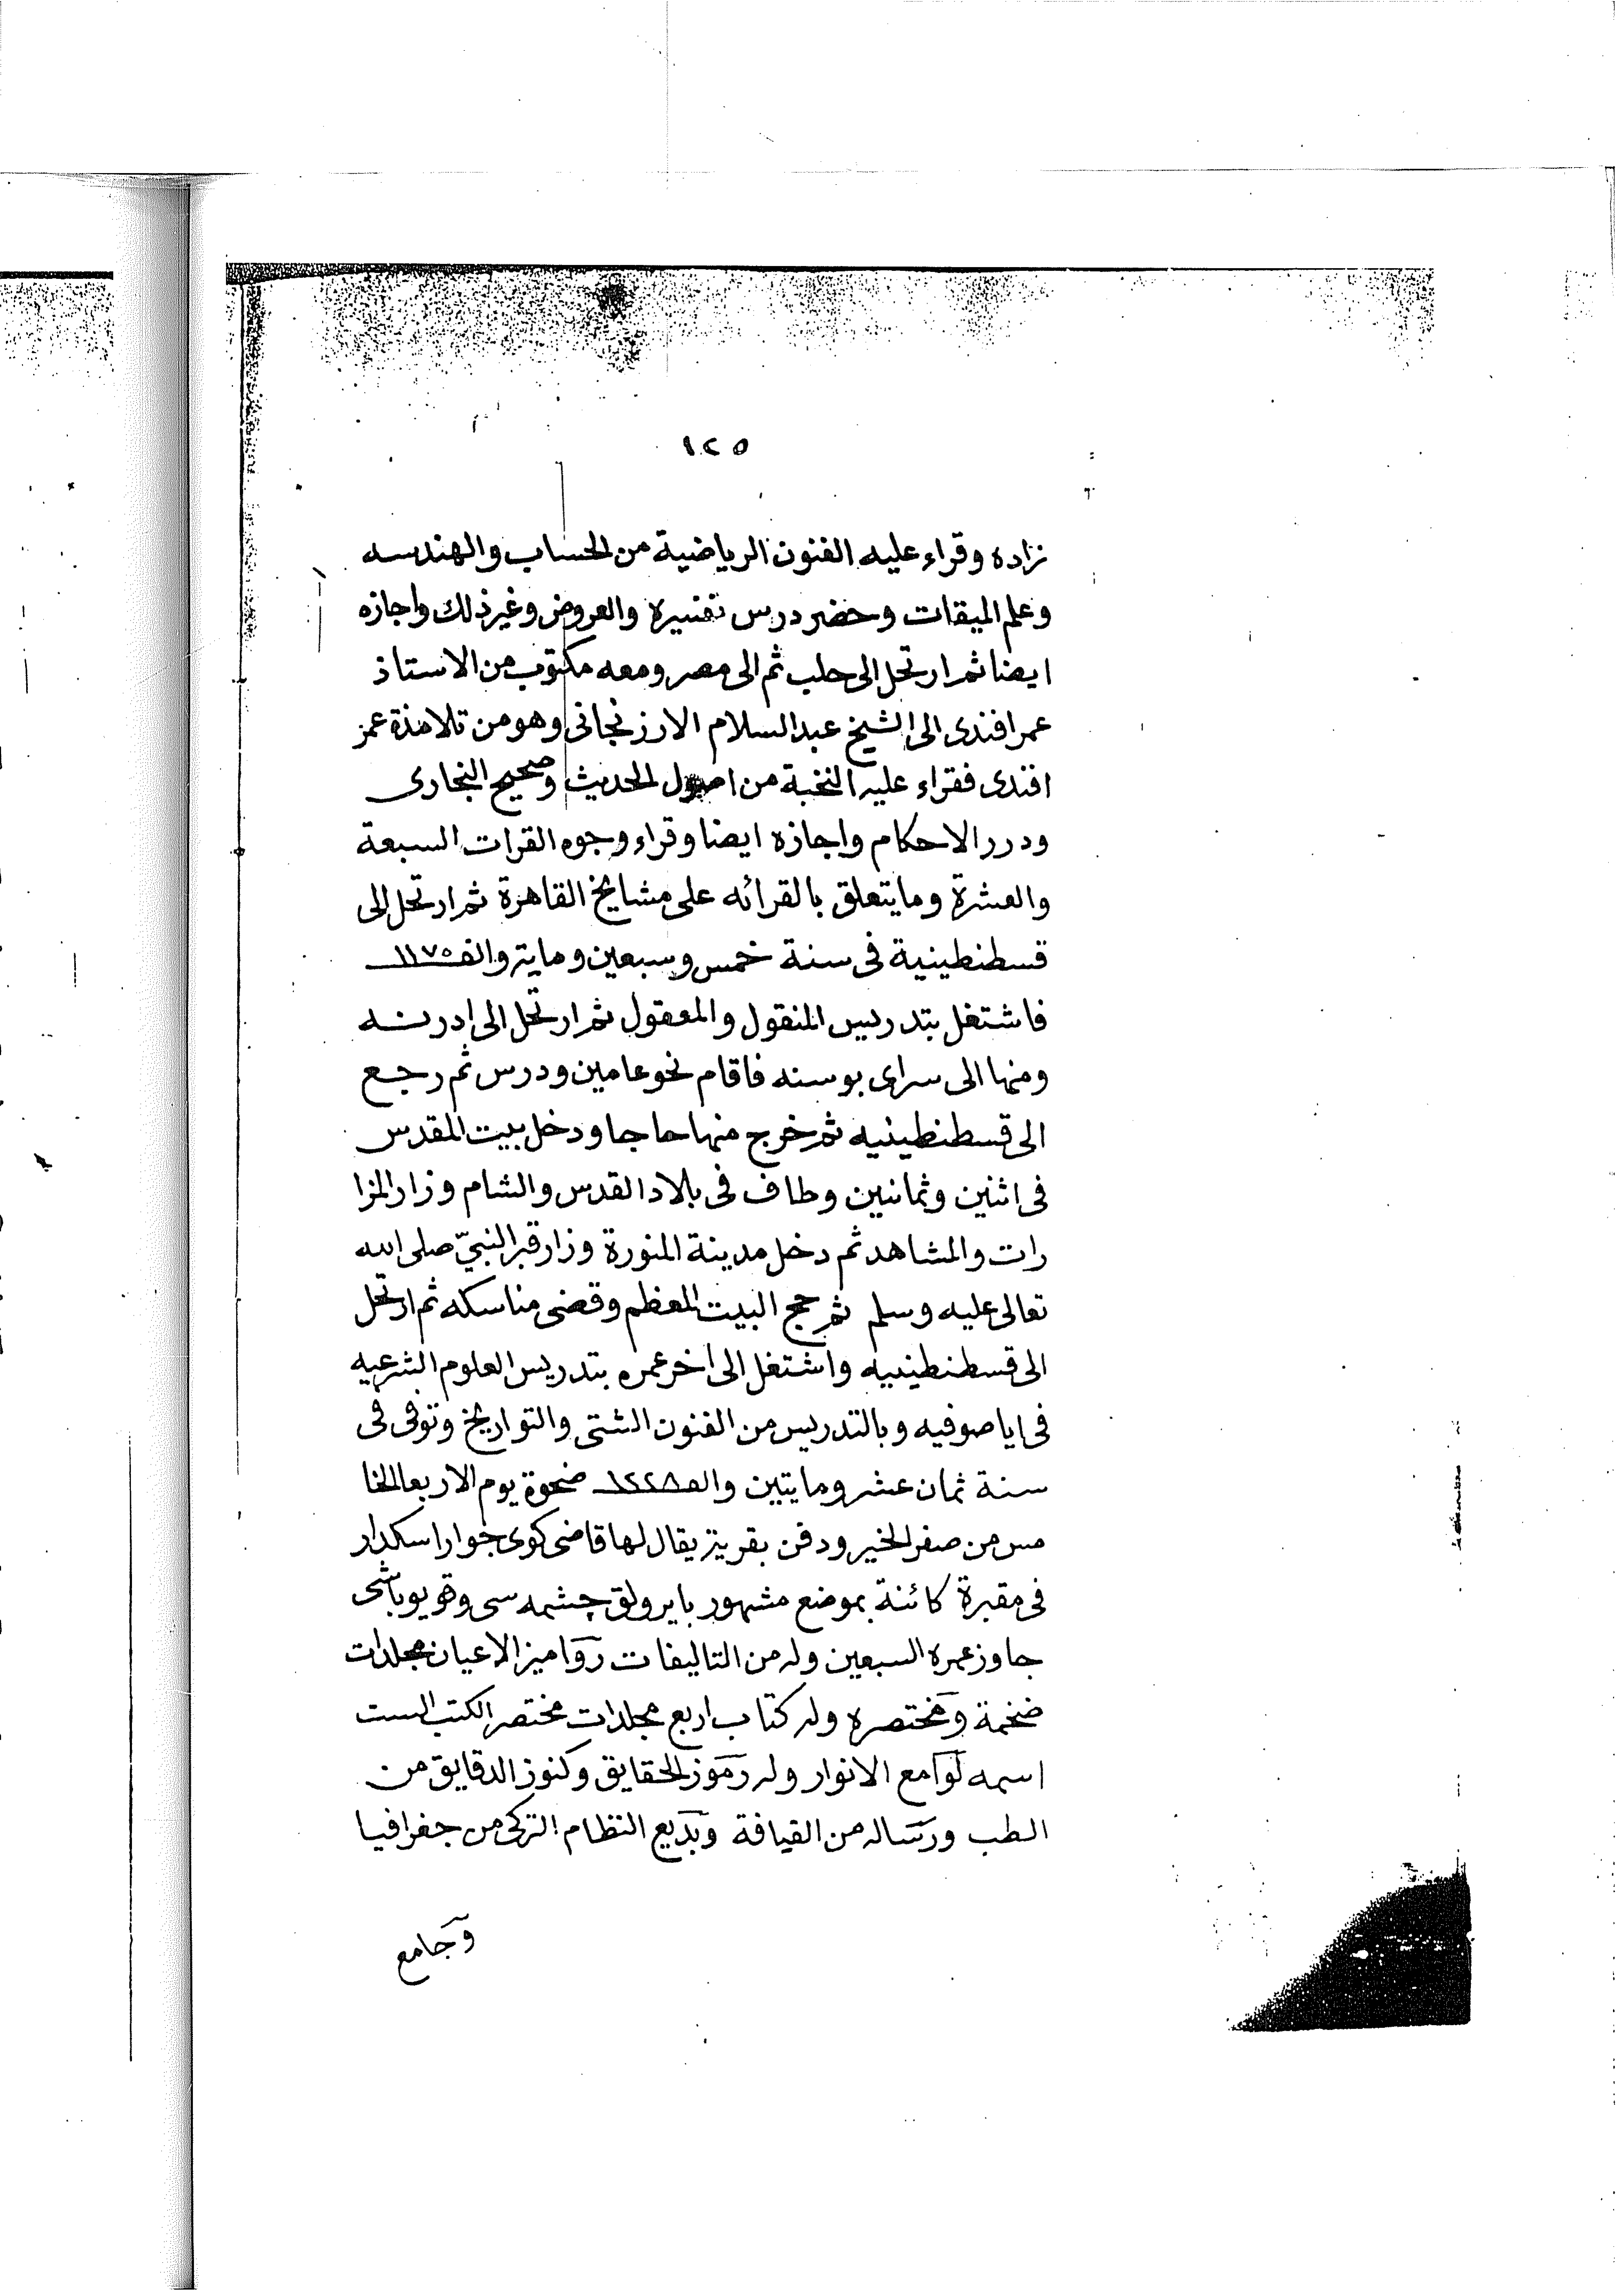 ١٢٥
زاده وقراء عليه الفنون الرياضية من الحساب والهندسه
وعلم الميقات وحضر درس تفسيره والعروض وغير ذلك واجازه
ايضا ثم ارتحل الى حلب ثم الى مصر ومعه مكتوب من الاستاذ
عمر افندى الى الشيخ عبد السلام الارزنجانى وهو من تلامذة عمر
افندى فقراء عليه النخبة من اصول الحديث وصحيح البخارى
ودرر الاحكام واجازه ايضا وقراء وجوه القرات السبعة
والعشرة وما يتعلق بالقرائه على مشايخ القاهرة ثم ارتحل الى
قسطنطينية فى سنة خمس وسبعين وماية والف ١١٧٥
فاشتغل بتدريس المنقول والمعقول ثم ارتحل الى ادرنه
ومنها الى سراى بوسنه فاقام نحو عامين ودرس ثم رجع
الى قسطنطينيه ثم خرج منها حاجا ودخل بيت المقدس
فى اثنين وثمانين وطاف فى بلاد القدس والشام وزار المزا
رات والمشاهد ثم دخل مدينة المنورة وزار قبر النبىّ صلى الله
تعالى عليه وسلم ثم حج البيت المعظم وقضى مناسكه ثم ارتحل
الى قسطنطينيه واشتغل الى اخر عمره بتدريس العلوم الشرعيه
فى اياصوفيه وبالتدريس من الفنون الشتى والتواريخ وتوفى فى
سنة ثمان عشر ومايتين والف ١٢٢٨ ضحوة يوم الاربعا الخا
مس من صفر الخير ودفن بقرية يقال لها قاضى كوى جوار اسكدار
فى مقبرة كائنة بموضع مشهور بايرولق چشمه سى وقويوباشى
جاوز عمره السبعين وله من التاليفات رواميز الاعيان مجلدات
ضخمة ومختصره وله كتاب اربع مجلدات مختصر الكتب الست
اسمه لوامع الانوار وله رموز الحقايق وكنوز الدقايق من
الطب ورساله من القيافة وبديع النظام التركى من جغرافيا
وجامع